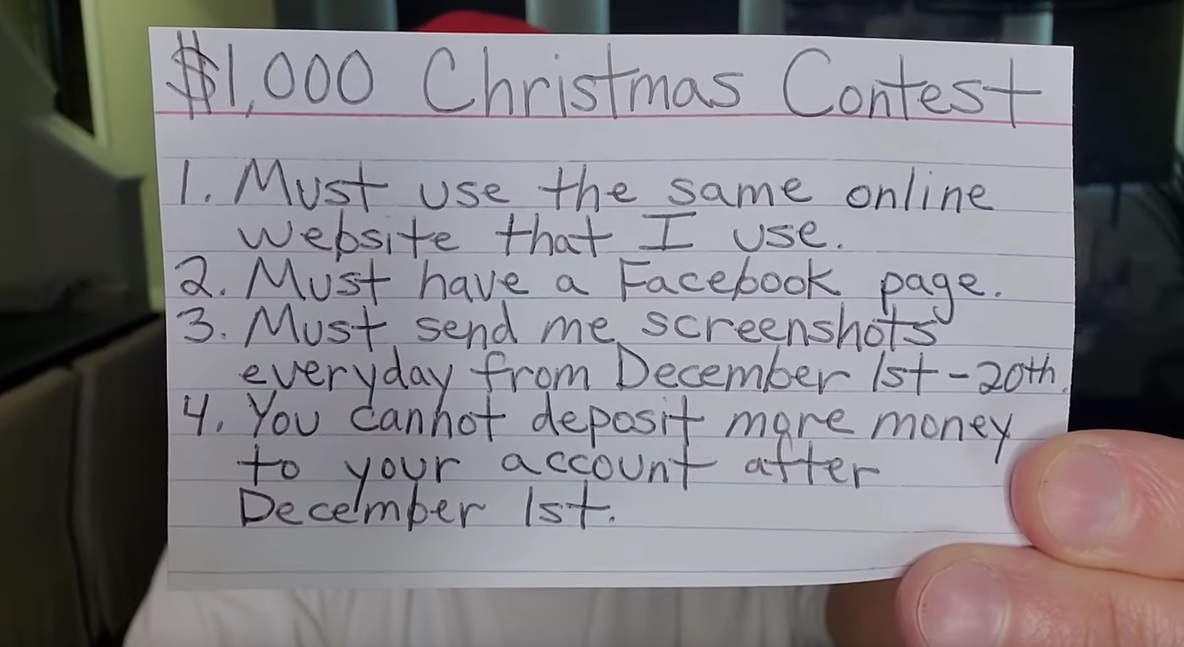 $1,000 Christmas Contest
1. Must use the same online
website that I use.
2. Must have a Facebook page.
3. Must send me screenshots
everyday from December 1st-20th.
4. You cannot deposit more money
to your account after
December 1st.